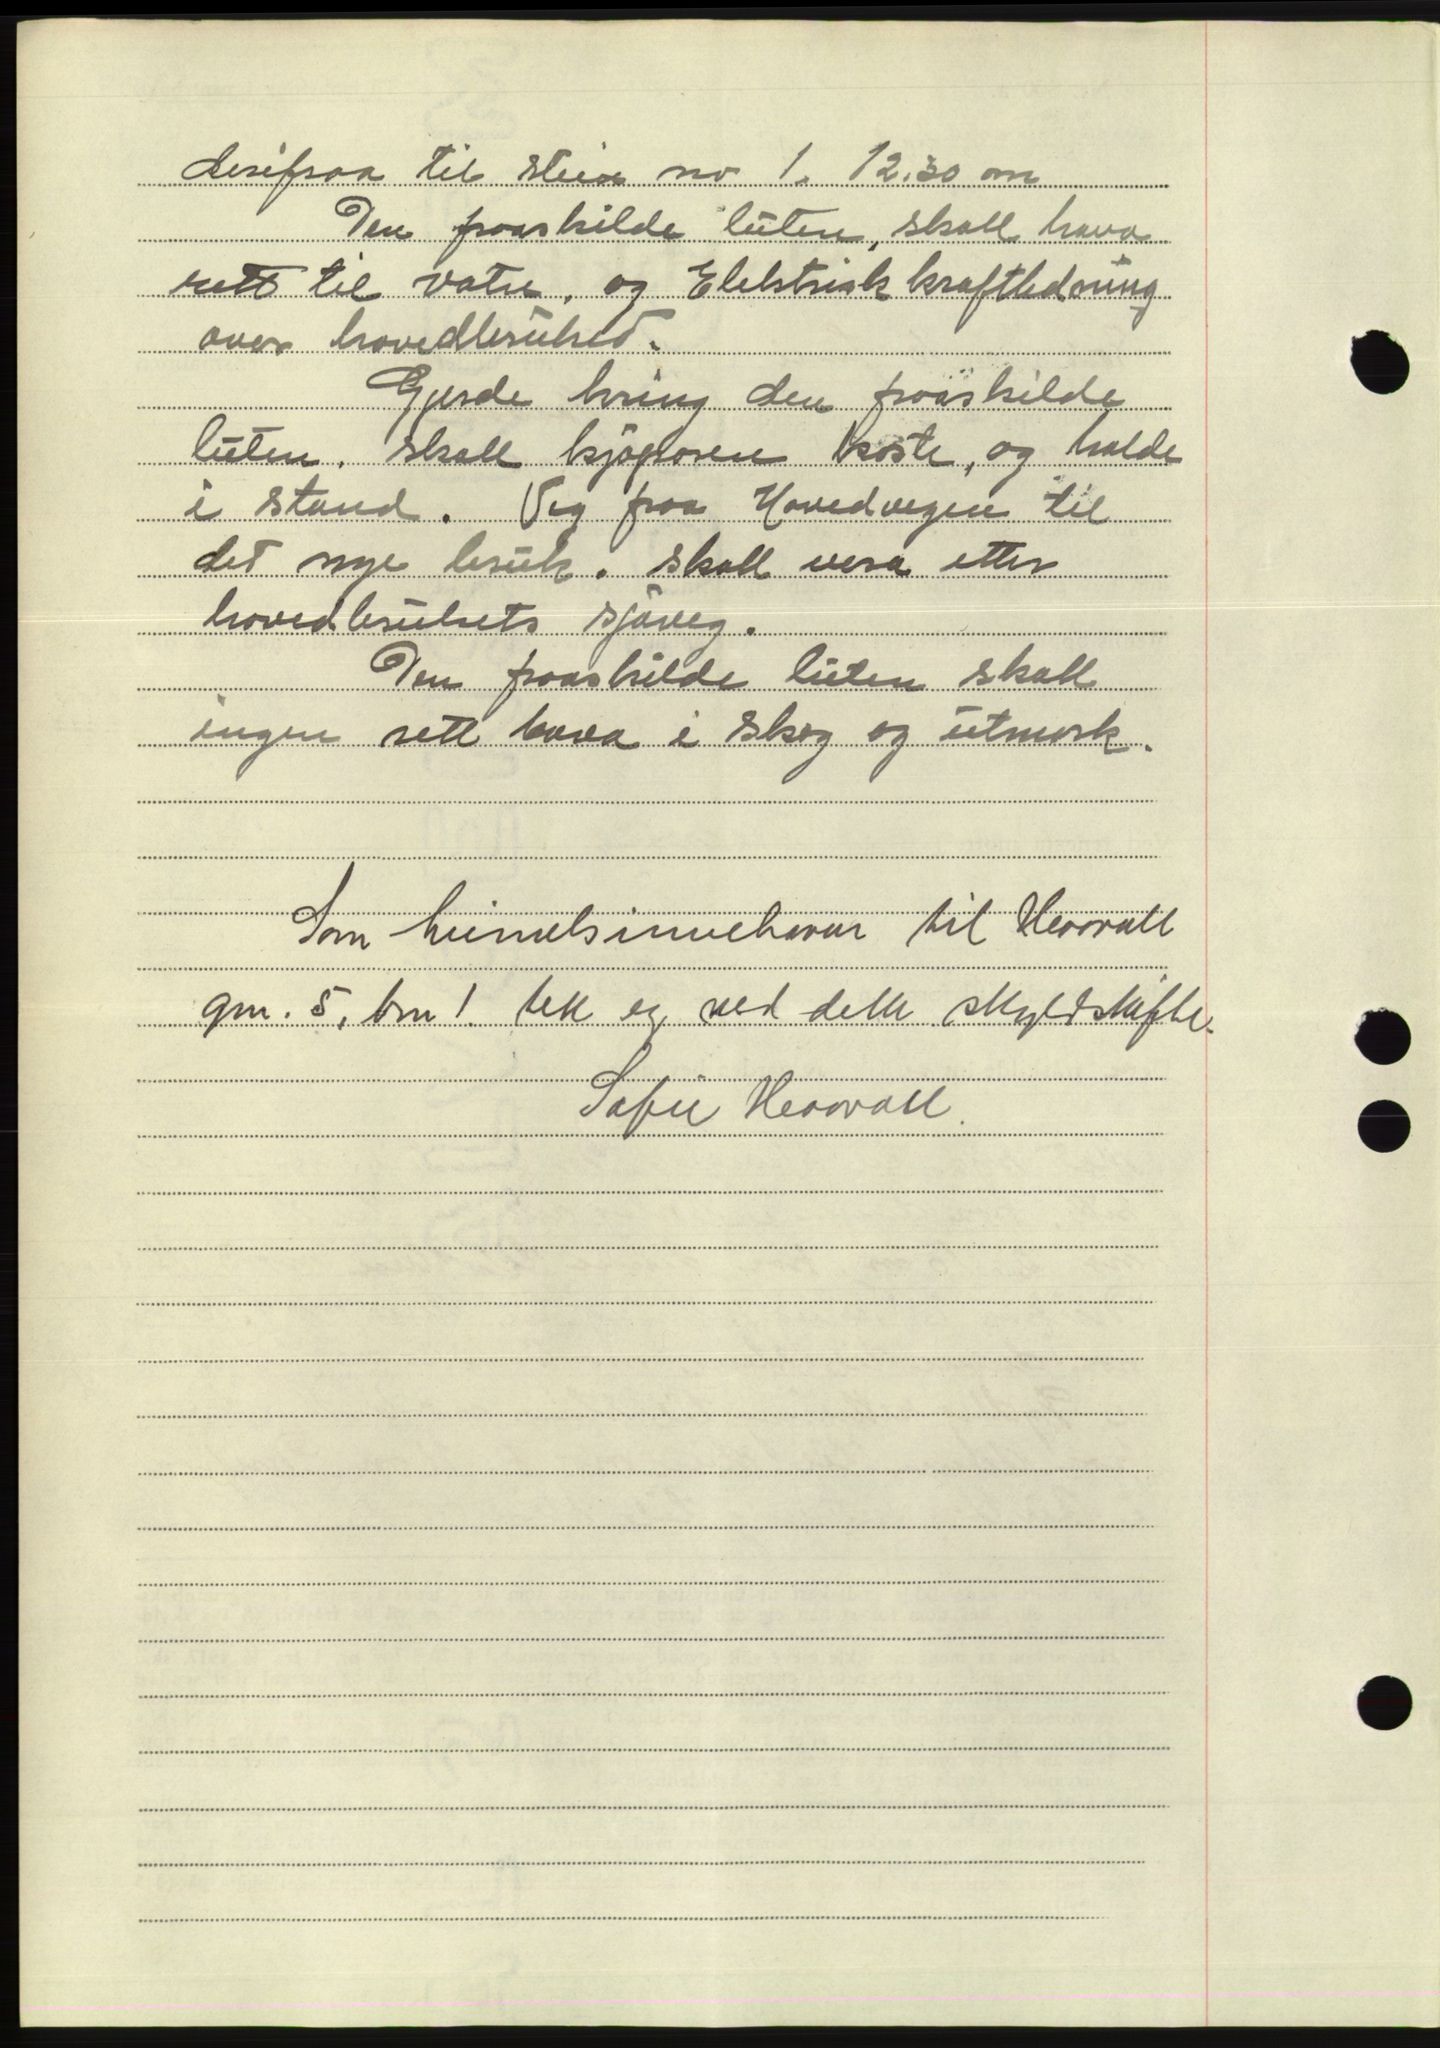 derifraa til stein no 1. 12.30 m
Den fraaskilde luten, skall hava
rett til vatn, og Elektrisk kraftledning
over hovedbruked.
Gjerde kring den fraaskilde
luten. skall kjøparen koste, og halde
i stand. Veg fraa Hovedvegen til
det nye bruk. skall vera etter
hovedbrukets sjøveg.
Den fraaskilde luten skall
ingen rett hava i skog og utmark.
Som heimelsinnehavar til Hovvall
gnr. 5, bnr 1. tek eg ved dette skyldskifte.
Sofie Hovvall.